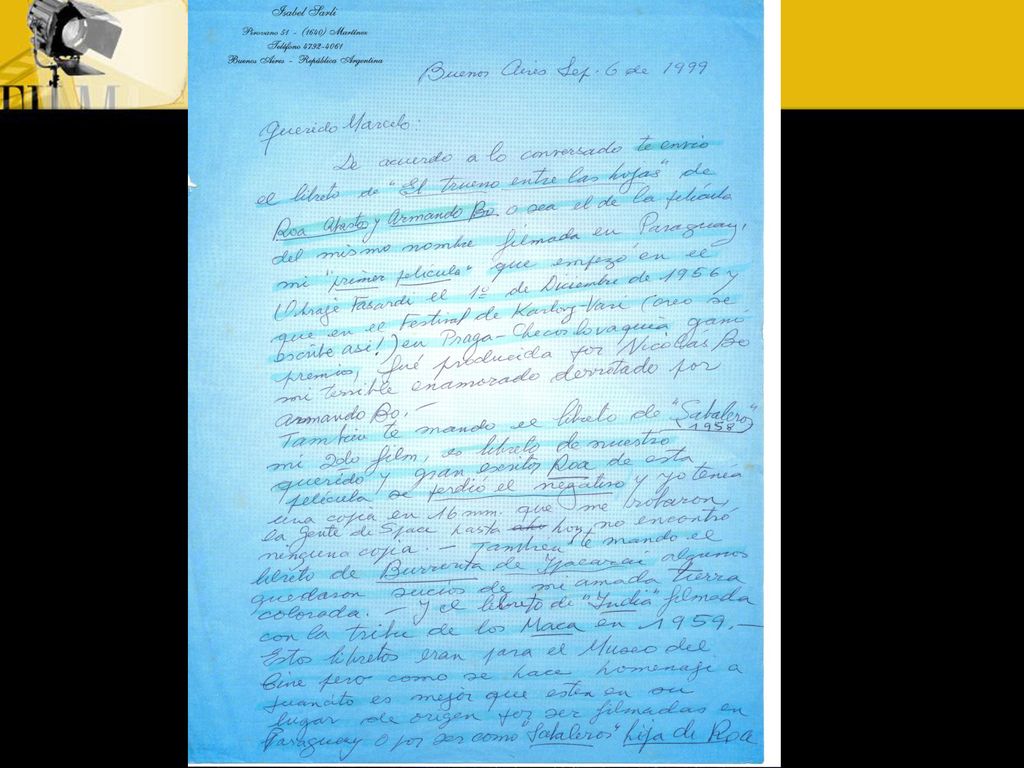 FILM
Isabel Sarli
Pirovano 51 - (1640) Martínez
Teléfono 4792-4061
Buenos Aires - República Argentina
Buenos Aires Sep. 6 de 1999
Querido Marcelo:
De acuerdo a lo conversado te envio
el libreto de "El trueno entre las hojas" de
Roa Bastos y Armando Bo o sea el de la película
del mismo nombre filmada en Paraguay,
mi "primer película" que empezó en el
Obraje Fasardi el 1º de Diciembre de 1956 y
que en el Festival de Karlovy-Vari (creo se
escribe asi!) en Praga-Checoslovaquia ganó
premio, fué producida por Nicolás Bo
mi terrible enamorado derrotado por
Armando Bo.-
Tambien te mando el libreto de "Sabalero"
1958
mi 2do film, es libreto de nuestro
querido y gran escritor Roa de esta
película se perdió el negativo y yo tenía
una copia en 16 mm. que me robaron
la gente de Space hasta hoy no encontró
ninguna copia.- Tambien te mando el
libreto de Burrerita de Ypacaraí algunos
quedaron sucios de mi amada tierra
colorada.- Y el libreto de "India" filmada
con la tribu de los Maca en 1959.-
Estos libretos eran para el Museo del
Cine pero como se hace homenaje a
Juancito es mejor que esten en su
lugar de origen por ser filmadas en
Paraguay o por ser como "Sabaleros" hija de Roa